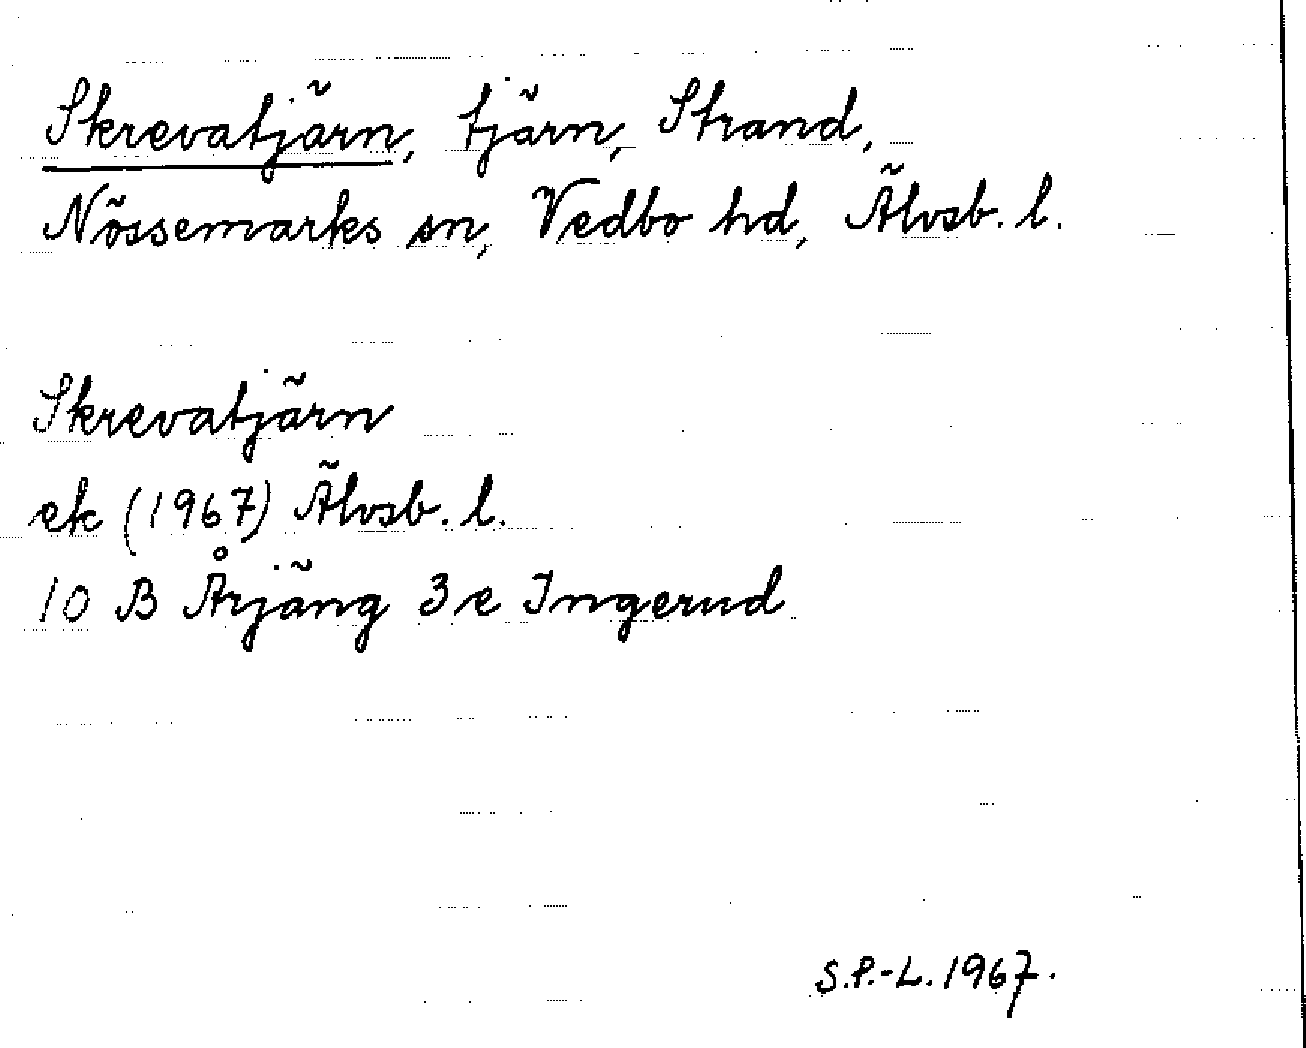 Skrevatjärn, tjärn, Strand,
Nössemarks sn, Vedbo hd, Älvsb. l.
Skrevatjärn
ek (1967) Älvsb. l.
10 B Årjäng 3 e Ingerud
S.P.-L. 1967.